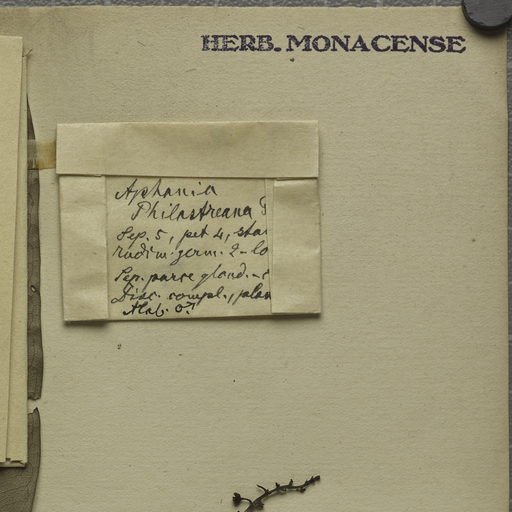 HERB. MONACENSE
Aphania
Philastreana
Sep. 5, pet 4, sta
rudim. germ. 2-lo
Sep. parce gland.
Disc. compl., plan
Alab. ♂